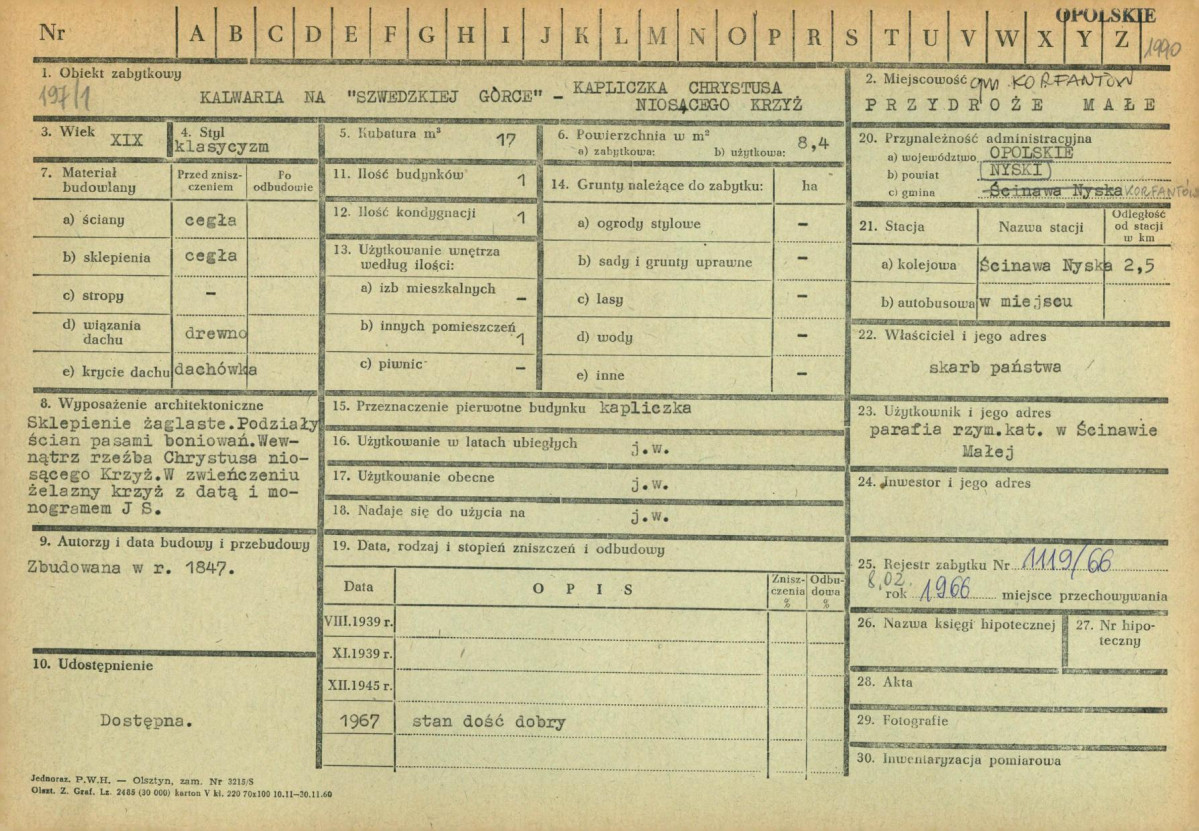 OPOLSKIE
Nr A B C D E F G H I J K L M N O P R S T U V W X Y Z
1990
1. Obiekt zabytkowy
197/1
KALWARIA NA "SZWEDZKIEJ GÓRCE" – KAPLICZKA CHRYSTUSA
NIOSĄCEGO KRZYŻ
2. Miejscowość gm KORFANTÓW
PRZYDROŻE MAŁE
3. Wiek
XIX
4. Styl
klasycyzm
5. Kubatura m³
17
6. Powierzchnia w m²
a) zabytkowa: b) użytkowa: 8,4
7. Materiał budowlany
Przed zniszczeniem
Po odbudowie
a) ściany cegła
b) sklepienia cegła
c) stropy –
d) wiązania dachu drewno
e) krycie dachu dachówka
8. Wyposażenie architektoniczne
Sklepienie żaglaste.Podziały
ścian pasami boniowań.Wew-
nątrz rzeźba Chrystusa nio-
sącego Krzyż.W zwieńczeniu
żelazny krzyż z datą i mo-
nogramem J S.
9. Autorzy i data budowy i przebudowy
Zbudowana w r. 1847.
10. Udostępnienie
Dostępna.
11. Ilość budynków 1
12. Ilość kondygnacji 1
13. Użytkowanie wnętrza
według ilości:
a) izb mieszkalnych –
b) innych pomieszczeń 1
c) piwnic –
14. Grunty należące do zabytku: ha
a) ogrody stylowe –
b) sady i grunty uprawne –
c) lasy –
d) wody –
e) inne –
15. Przeznaczenie pierwotne budynku kapliczka
16. Użytkowanie w latach ubiegłych j.w.
17. Użytkowanie obecne j.w.
18. Nadaje się do użycia na j.w.
19. Data, rodzaj i stopień zniszczeń i odbudowy
Data
OPIS
Znisz-
czenia
%
Odbu-
dowa
%
VIII.1939 r.
XI.1939 r.
XII.1945 r.
1967 stan dość dobry
20. Przynależność administracyjna
a) województwo OPOLSKIE
b) powiat NYSKI
c) gmina Ścinawa Nyska KORFANTÓW
21. Stacja
Nazwa stacji
Odległość
od stacji
w km
a) kolejowa Ścinawa Nyska 2,5
b) autobusowa w miejscu
22. Właściciel i jego adres
skarb państwa
23. Użytkownik i jego adres
parafia rzym.kat. w Ścinawie
Małej
24. Inwestor i jego adres
25. Rejestr zabytku Nr 1119/66
8.02.
rok 1966 miejsce przechowywania
26. Nazwa księgi hipotecznej
27. Nr hipo-
teczny
28. Akta
29. Fotografie
30. Inwentaryzacja pomiarowa
Jednoraz. P.W.H. — Olsztyn, zam. Nr 3215/S
Olszt. Z. Graf. Lz. 2485 (30 000) karton V kl. 220 70x100 10.11—30.11.60